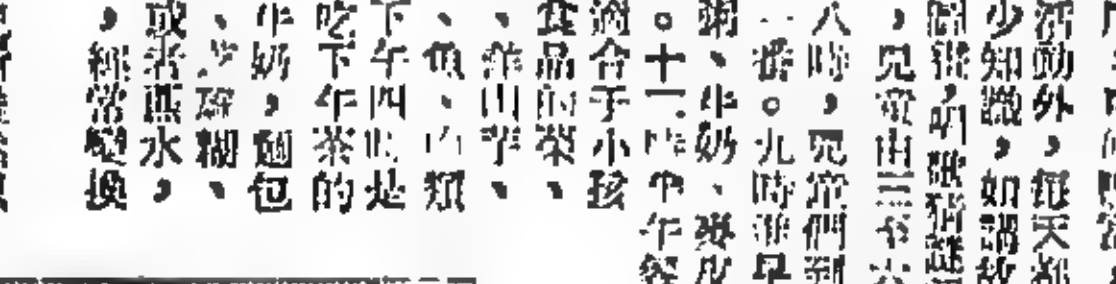 活動外,每天都
少知識,如講故
圖畫,唱歌猜謎
,兒童由三至六
八時,兒童們到
一番。九時進早
粥、牛奶、麥皮
。十一時半午餐
適合于小孩
食品的菜、
、洋山芋、
、魚、肉類
下午四時是
吃下午茶的
牛奶,麵包
糊、
或者蔗水,
,經常變換